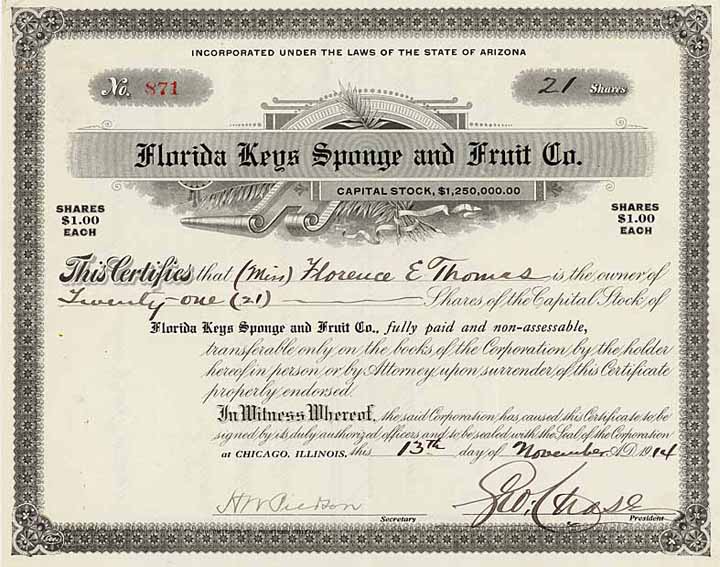 INCORPORATED UNDER THE LAWS OF THE STATE OF ARIZONA
No. 871
21 Shares
Florida Keys Sponge and Fruit Co.
CAPITAL STOCK, $1,250,000.00
SHARES
$1.00
EACH
SHARES
$1.00
EACH
This Certifies that (Miss) Florence E Thomas is the owner of
Twenty-one (21) Shares of the Capital Stock of
Florida Keys Sponge and Fruit Co., fully paid and non-assessable,
transferable only on the books of the Corporation by the holder
hereof in person or by Attorney upon surrender of this Certificate
properly endorsed.
In Witness Whereof, the said Corporation has caused this Certificate to be
signed by its duly authorized officers and to be sealed with the Seal of the Corporation
at CHICAGO, ILLINOIS, this 13th day of November A.D. 1914
Secretary
Geo. Chase
President